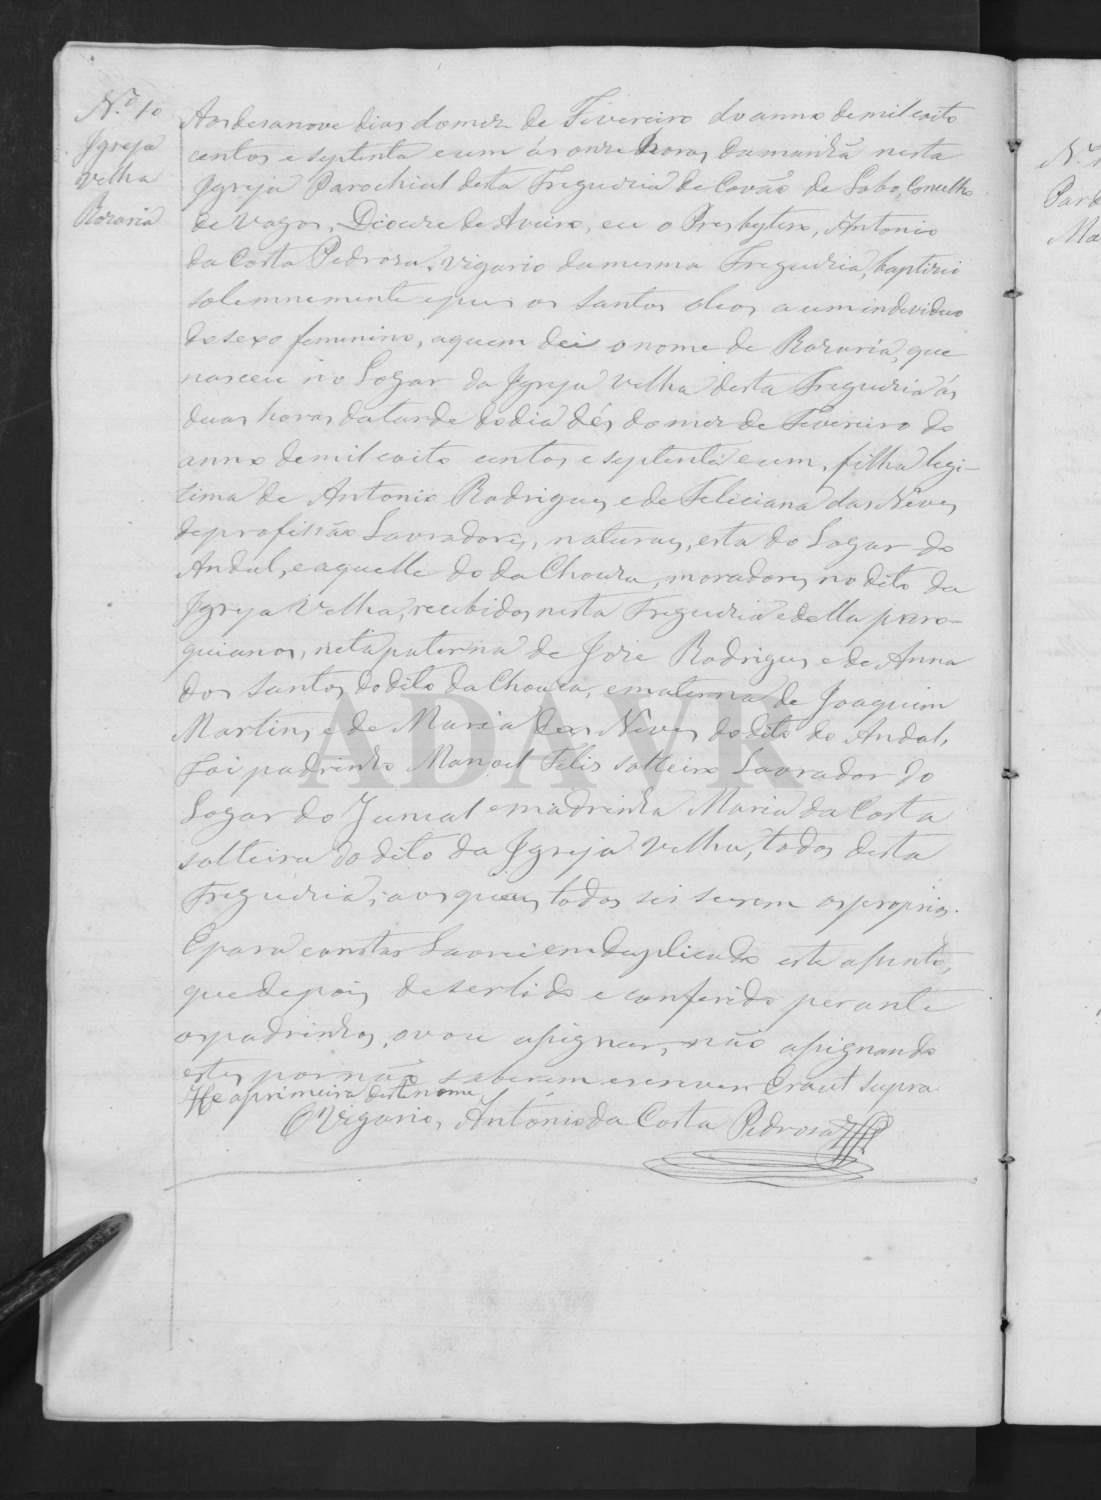 N.º 10
Igreja
Velha
Rozaria
Aos desanove dias do mez de Fivereiro do anno de mil oito
centos e septenta e um ás onze horas da manhã nesta
Igreja Parochial desta Freguezia de Covão de Lobo, Concelho
de Vagos, Dioceze de Aveiro, eu o Presbytero, Antonio
da Costa Pedroza, Vigario da mesma Freguezia, baptizei
solemnemente e pus os santos oleos a um individuo
do sexo feminino, a quem dei o nome de Rozaria, que
nasceu no Logar da Igreja Velha desta Freguezia ás
duas horas da tarde do dia dés do mez de Fevereiro do
anno de mil oito centos e septenta e um, filha legi-
tima de Antonio Rodrigues e de Feliciana das Neves
de profissão Lavradores, naturaes, esta do Logar do
Andal, e aquelle do da Chouza, moradores no dito da
Igreja Velha, recebidos nesta Freguezia e della paro-
quianos, neta paterna de Joze Rodrigues e de Anna
dos Santos do dito da Chouza, e materna de Joaquim
Martins e de Maria das Neves do dito do Andal,
Foi padrinho Manoel Felis solteiro Lavrador do
Logar do Juncal e madrinha Maria da Costa
solteira do dito da Igreja Velha, todos desta
Freguezia, aos quaes todos sei serem os proprios.
E para constar Lavrei em duplicado este assento,
que depois de ser lido e conferido perante
os padrinhos, o vou assignar, não assignando
estes por não saberem escrever Era ut supra
He a primeira deste nome
O Vigario, Antonio da Costa Pedroza
ADAVR